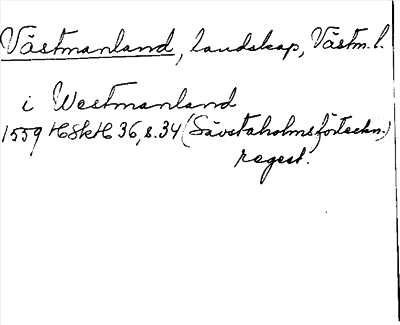 Västmanland, landskap, Västm.l.
i Westmanland
1559 HSkH 36, s. 34 (Sävstaholmsförteckn.)
regest.